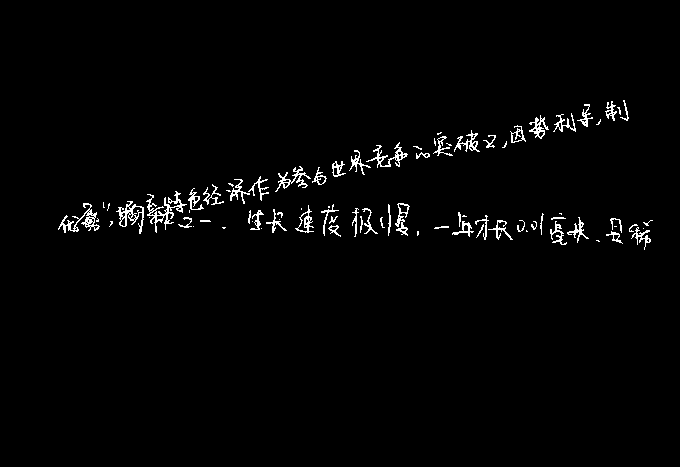 特色经济作为参与世界竞争的突破口,因势利导,制
之一、生长速度极慢,一年才长0.01毫米、且稀